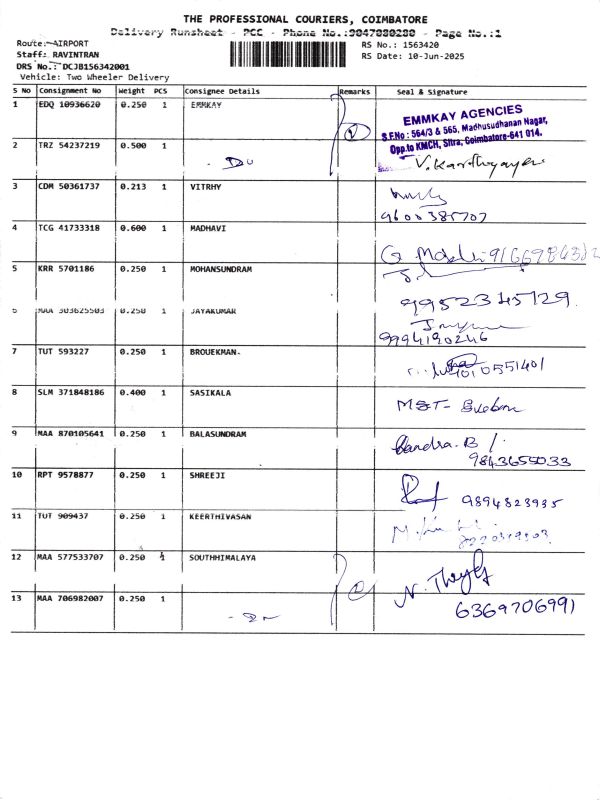 THE PROFESSIONAL COURIERS, COIMBATORE
Delivery Runsheet - PCC - Phone No.:9047080280 - Page No.:1
Route: AIRPORT
RS No.: 1563420
Staff: RAVINTRAN
RS Date: 10-Jun-2025
DRS No.: DCJB156342001
Vehicle: Two Wheeler Delivery
S No Consignment No Weight PCS Consignee Details Remarks Seal & Signature
1 EDQ 10936620 0.250 1 EMMKAY 2
EMMKAY AGENCIES
S.F.No : 564/3 & 565, Madhusudhanan Nagar,
Opp.to KMCH, Sitra, Coimbatore-641 014.
2 TRZ 54237219 0.500 1 - Do V. Karthigayen
3 CDM 50361737 0.213 1 VITRHY
9600385707
4 TCG 41733318 0.600 1 MADHAVI
G.
5 KRR 5701186 0.250 1 MOHANSUNDRAM
9952345729.
6 MAA 303625503 0.250 1 JAYAKUMAR
9994190246
7 TUT 593227 0.250 1 BROUEKMAN.
8 SLM 371848186 0.400 1 SASIKALA
9 MAA 870105641 0.250 1 BALASUNDRAM Chandra. B
9843655033
10 RPT 9578877 0.250 1 SHREEJI 9894823935
11 TUT 909437 0.250 1 KEERTHIVASAN
12 MAA 577533707 0.250 1 SOUTHHIMALAYA
13 MAA 706982007 0.250 1 6369706991